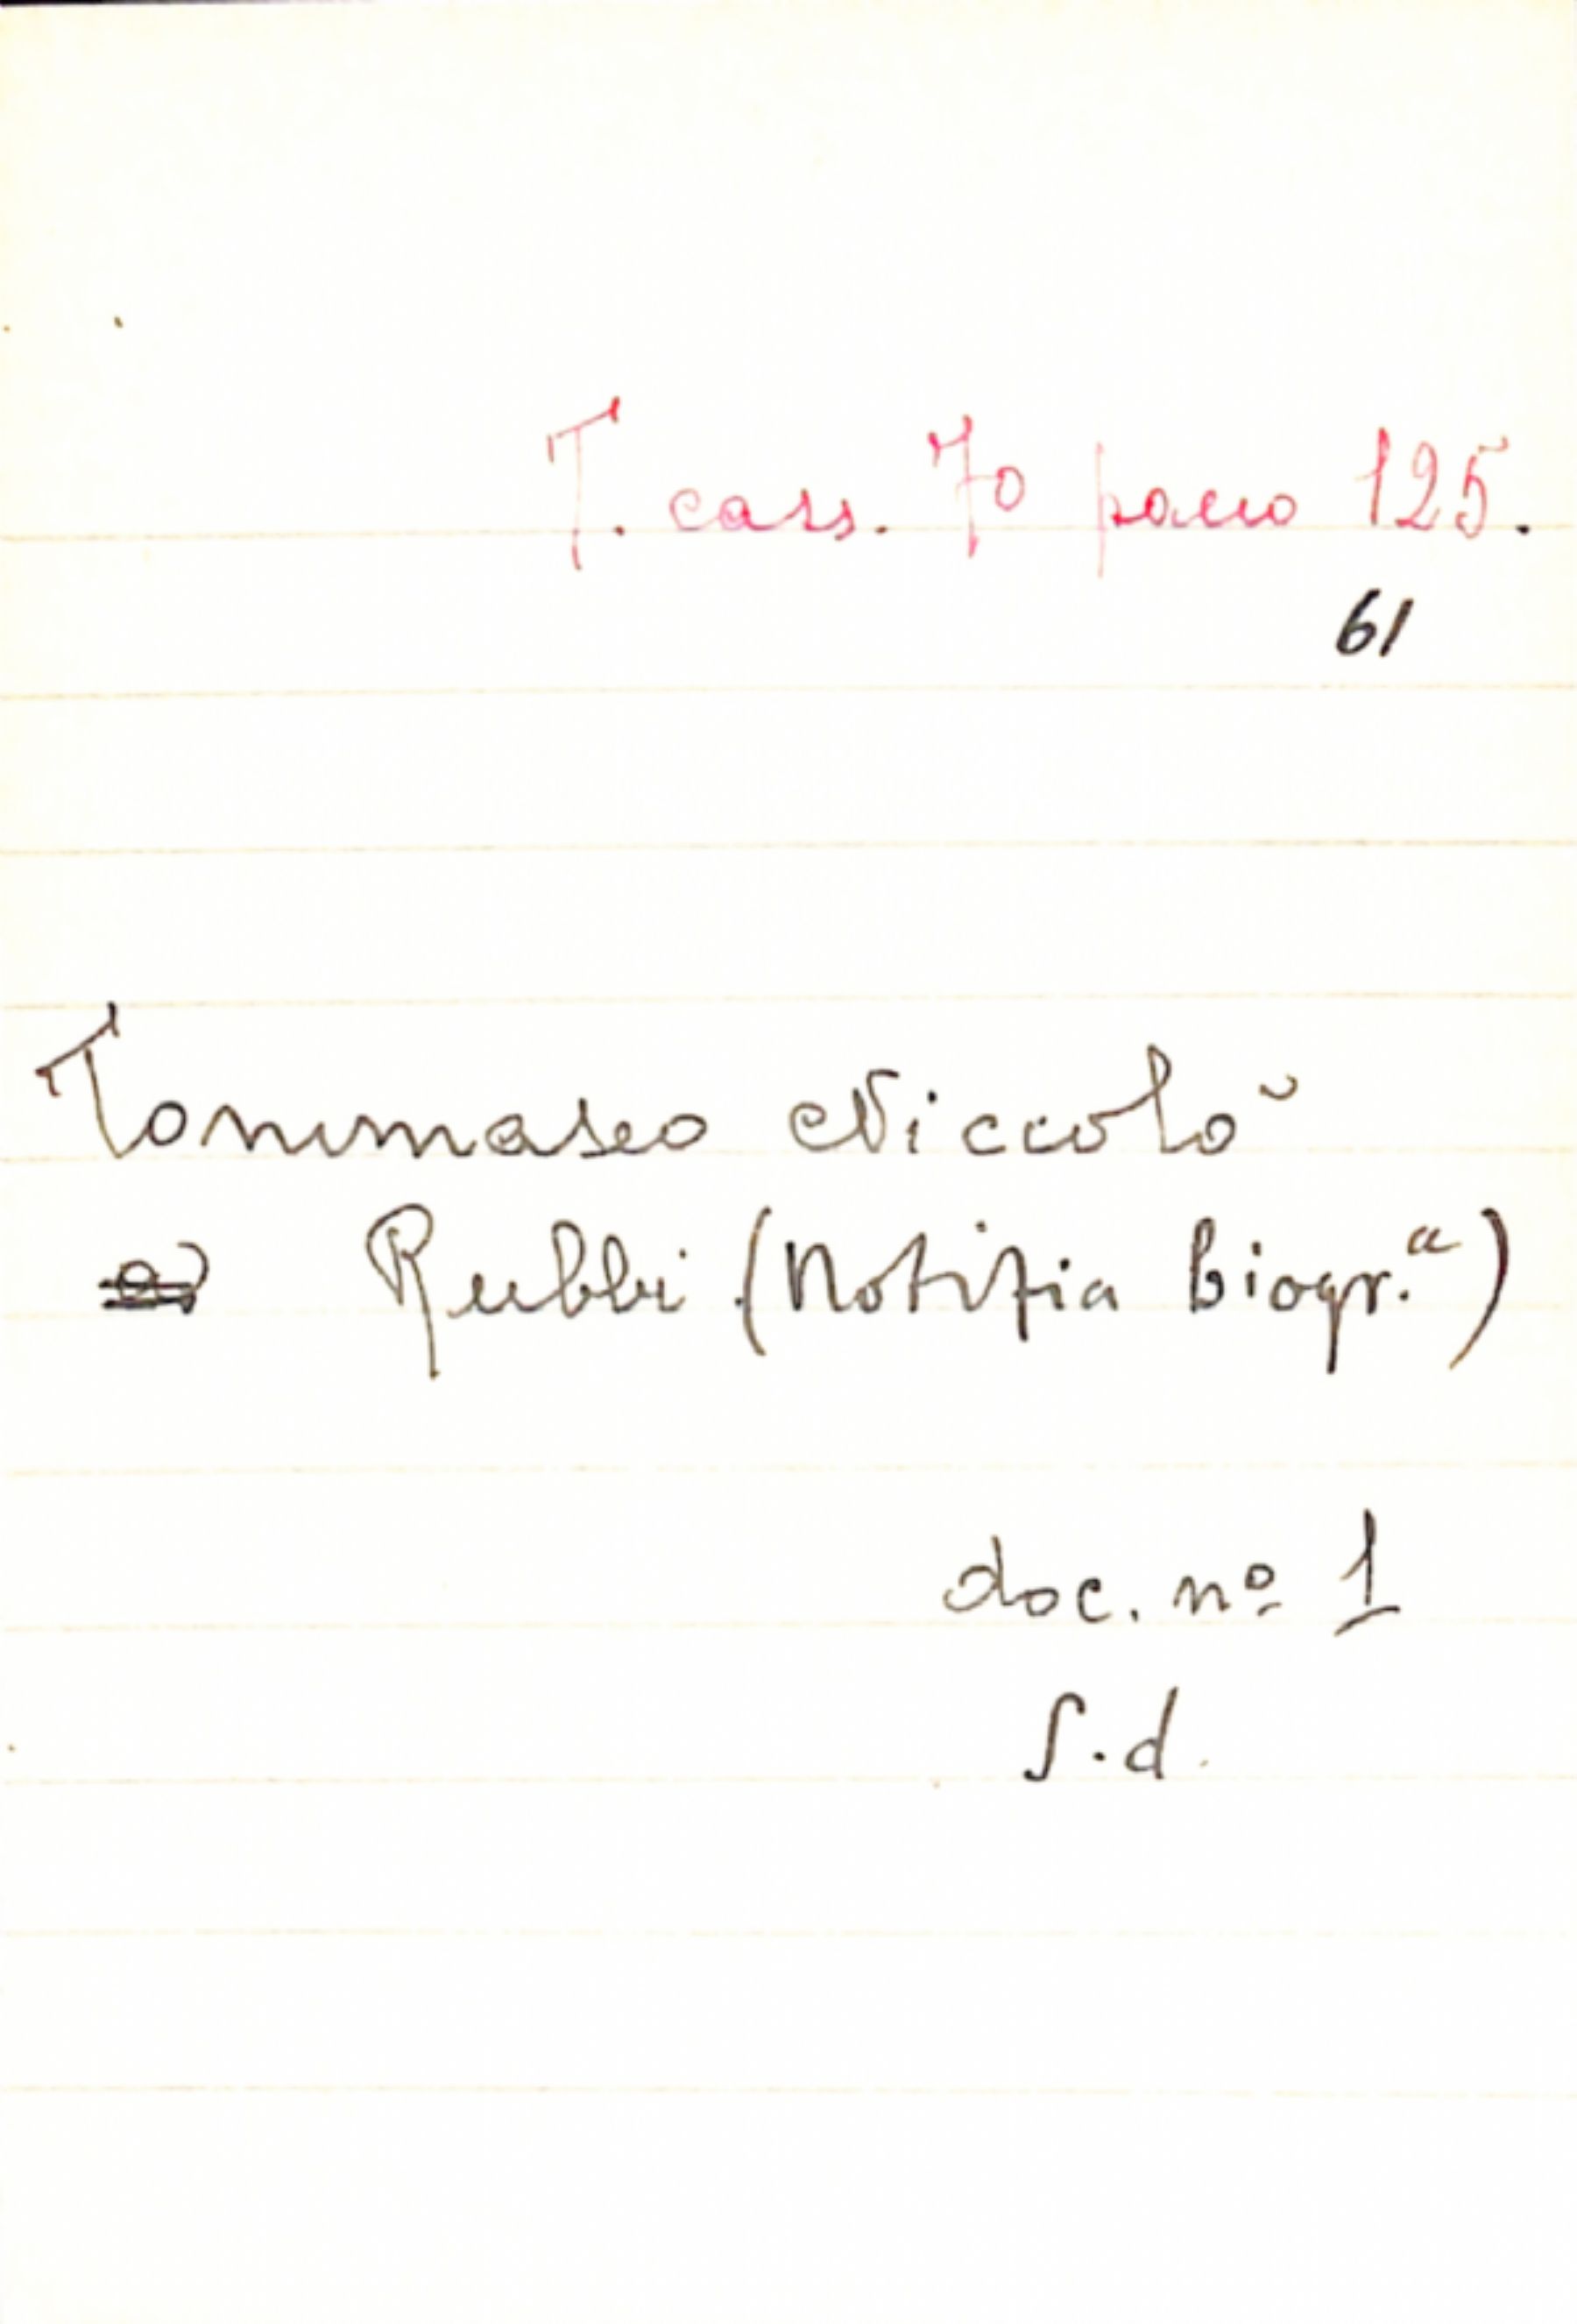 T. cass. 70 pacco 125.
61
Tommaseo Niccolò
Rubbi (Notizia biogr.ª)
doc. nº 1
S.d.